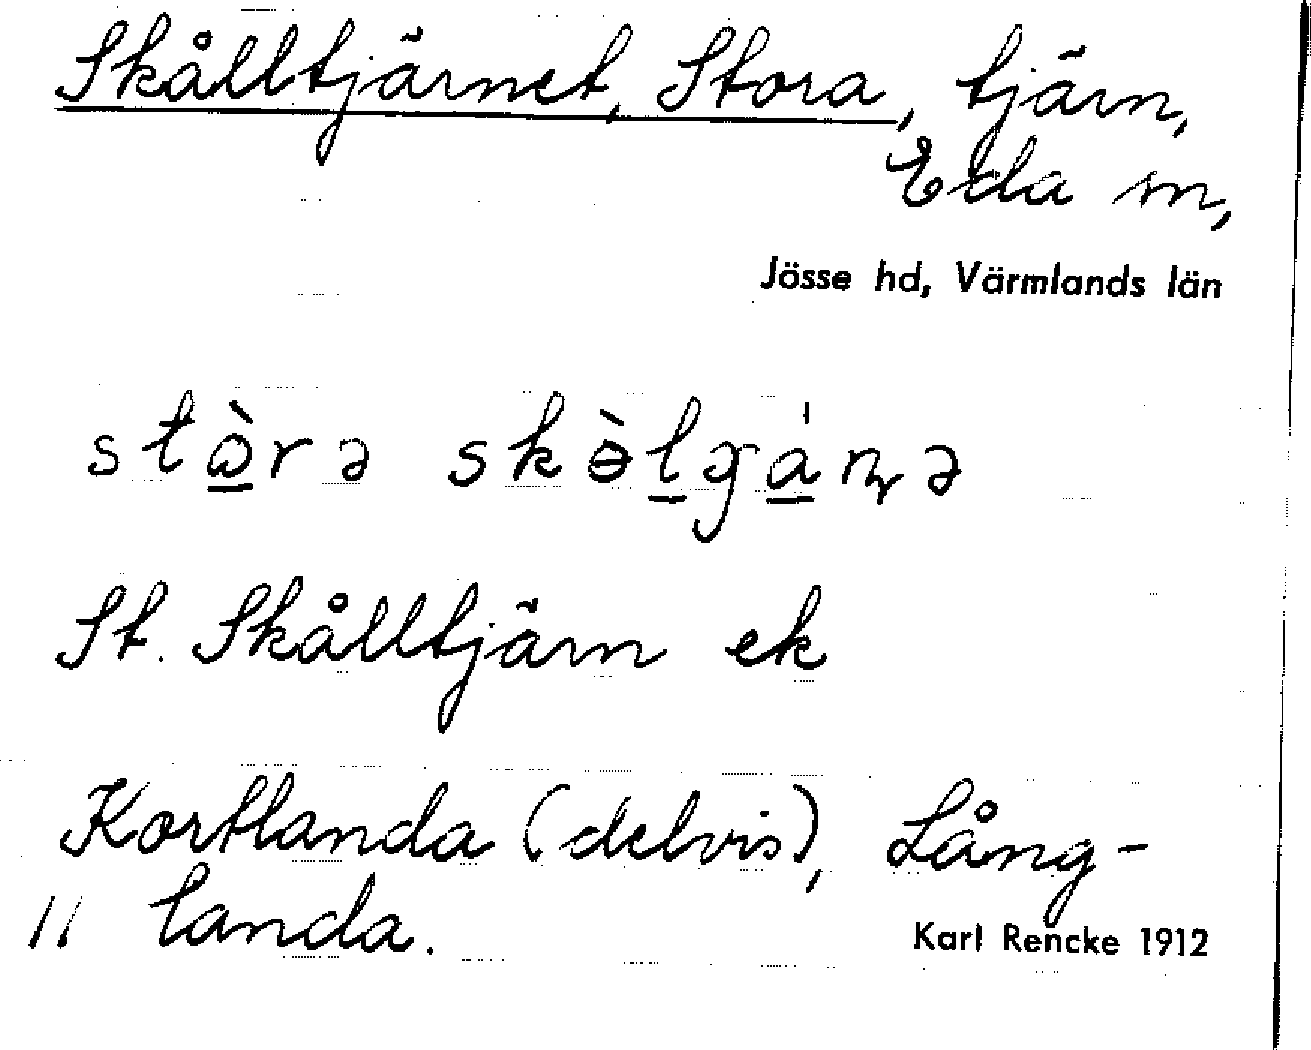 Skålltjärnet, Stora, tjärn,
Eda sn,
Jösse hd, Värmlands län
St. Skålltjärn ek
Kortlanda (delvis), Lång-
landa.
Karl Rencke 1912